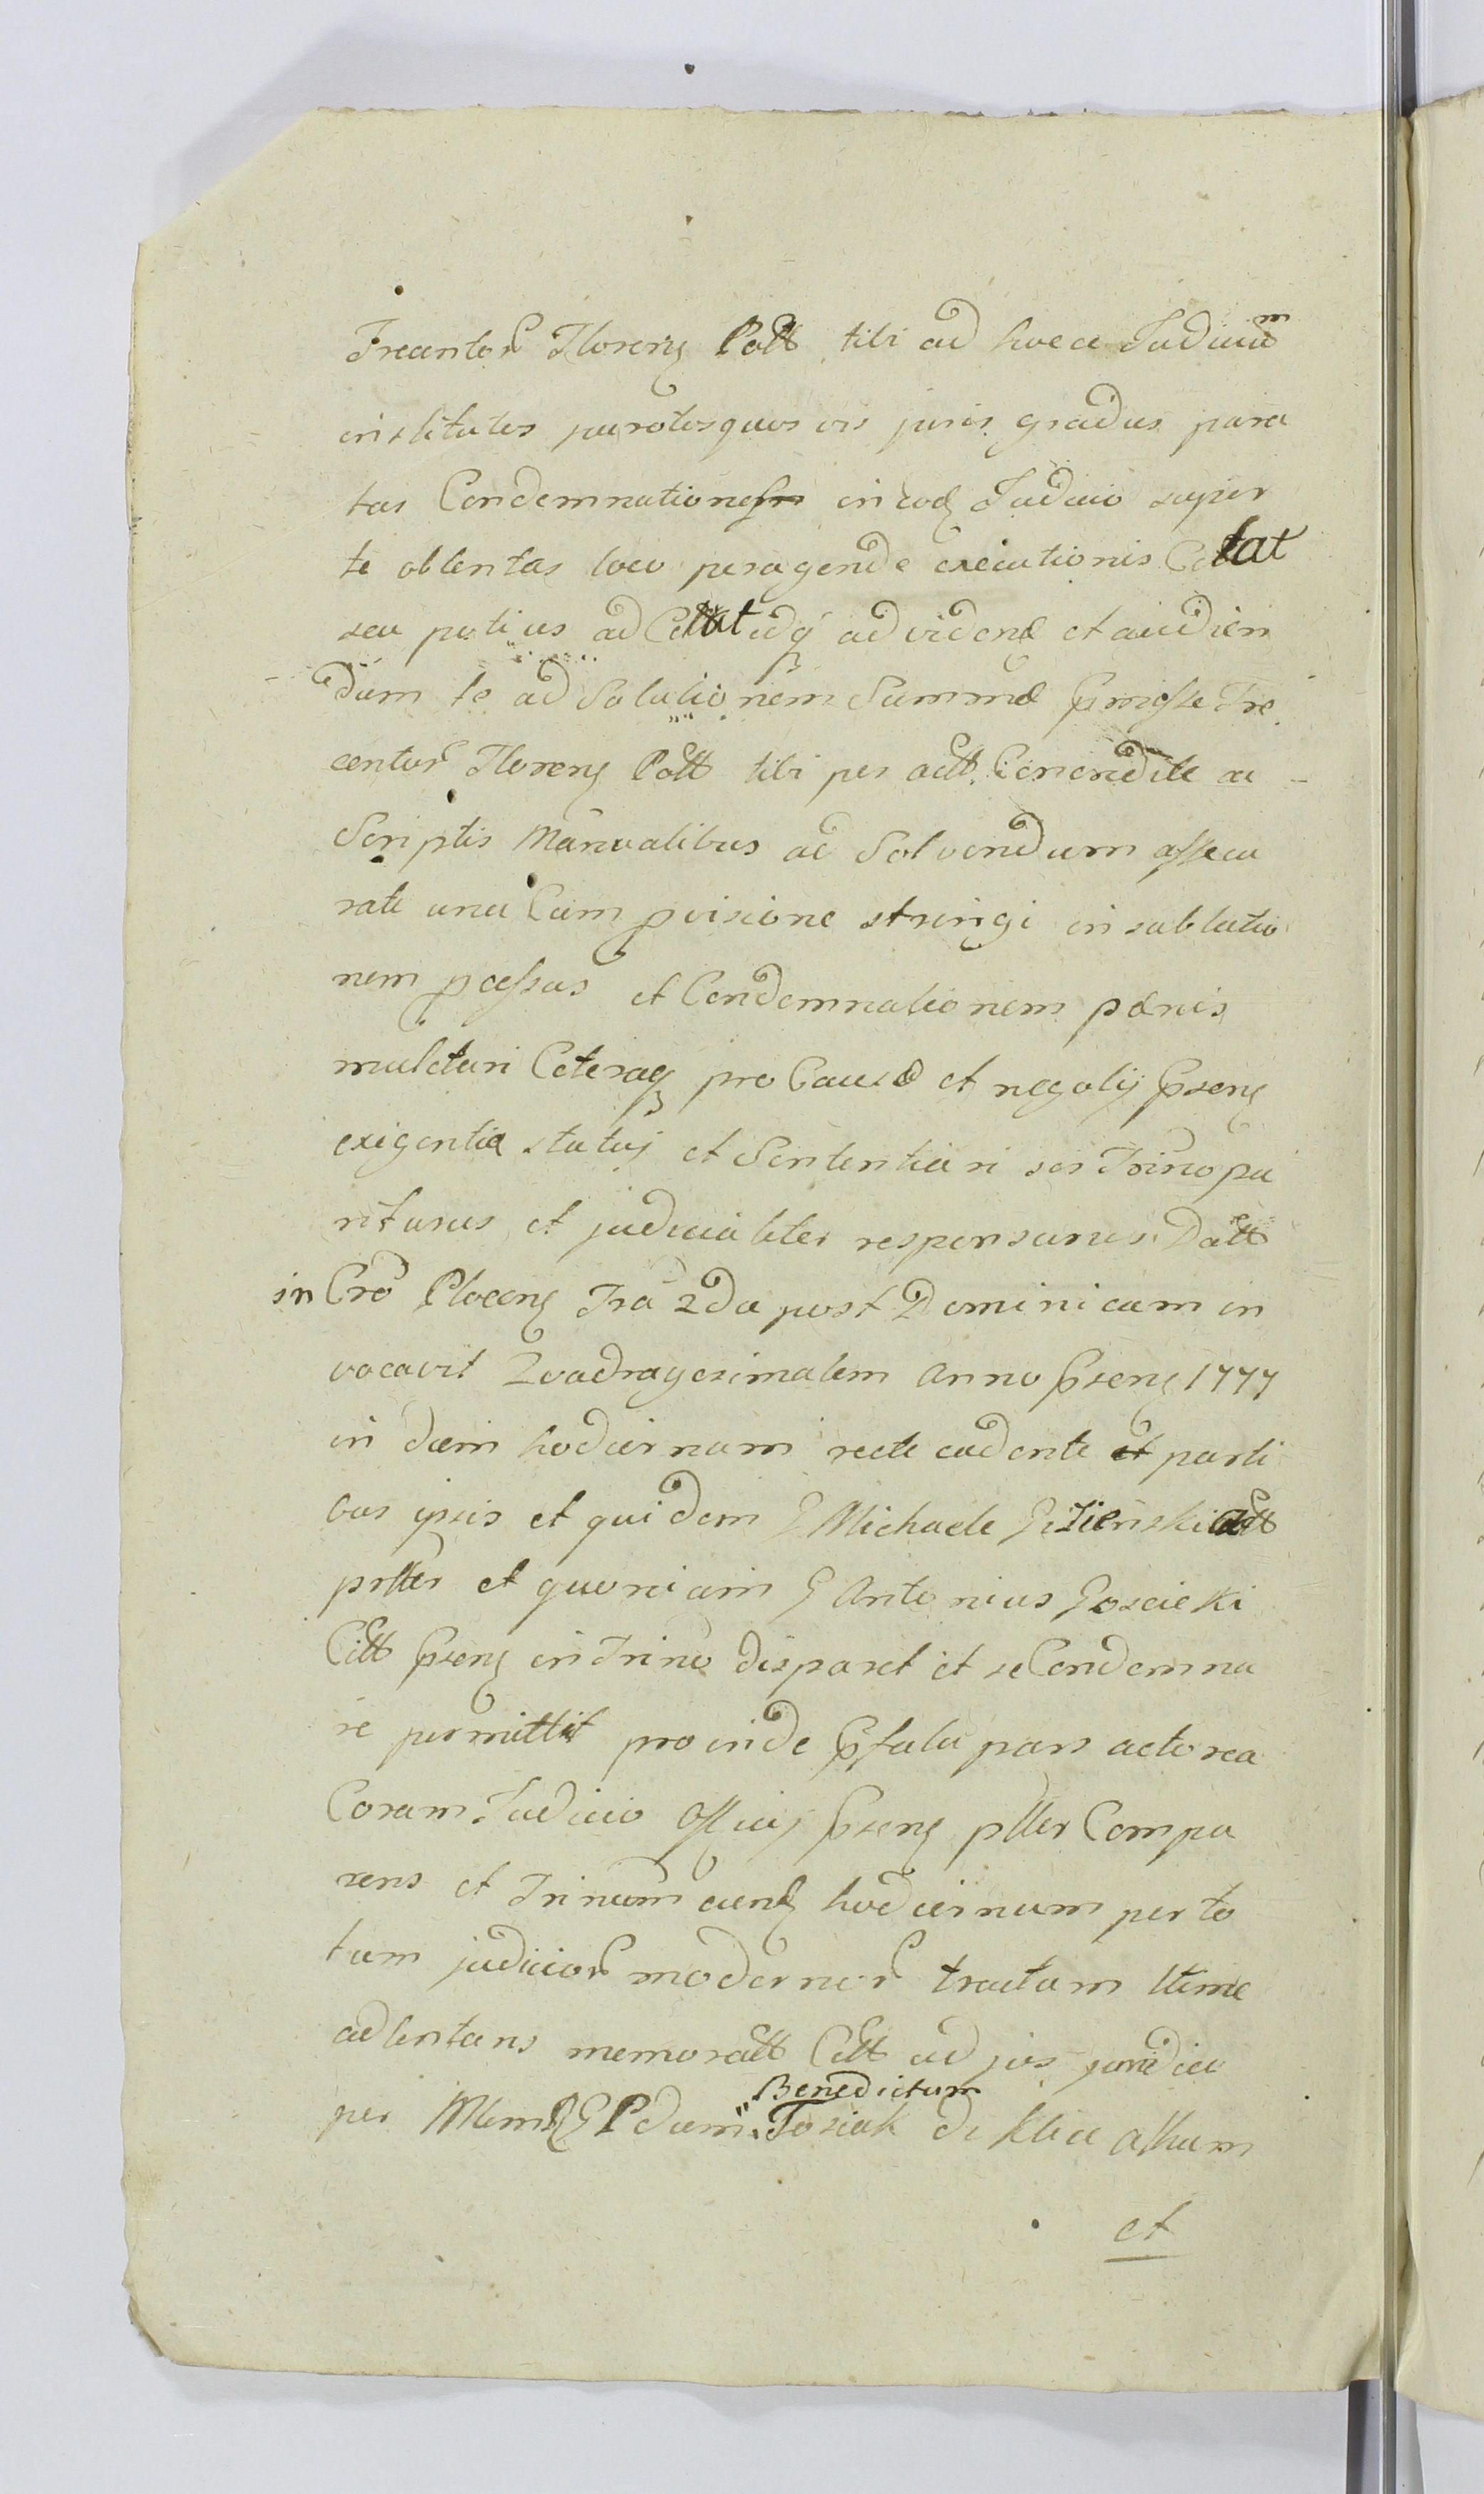 Trecentor Floreng Poltt tibi ad haec Judicium
institutos peractosque vis juris gradus para
tas Condemnationes in eodq Judicio super
te obtentas loco peragende executionis Citat
seu potius ad Citat idq ad vidend et audien
dum te ad Solutionem Summe pmisse Tre
centor Floreng Poltt tibi per actt. ac
Scriptis Manualibus ad Solvendum assecu
rate una Cum pvisione stringi in sublatio
nem pcessus et Condemnationem paenis
mulctari Ceteraq pro Causae et negotij psens
exigentia statuj et Sententiari sis Trino pa
riturus et judicialiter responsurus Datt
in Cro Plocens Fra 2da post Dominicam in
vocavit Quadragesimalem Anno psens 1777
in diem hodiernam recte cadente et parti
bus ipsis et quidem G Michaele Gizienski actt
psltter et quoniam G Antonius Goscicki
Citt psens in Trino disparet et se Condemna
re permittit proinde pfata pars actorea
Coram Judicio Officij psens psltter Compa
rens et Trinum eund hodiernum per to
tum judicior modernor tractum ltime
adtentans memoratt Citt ad jus juridice
per Mlem G Pdum Benedictum Tosiak de Klice asstum
et